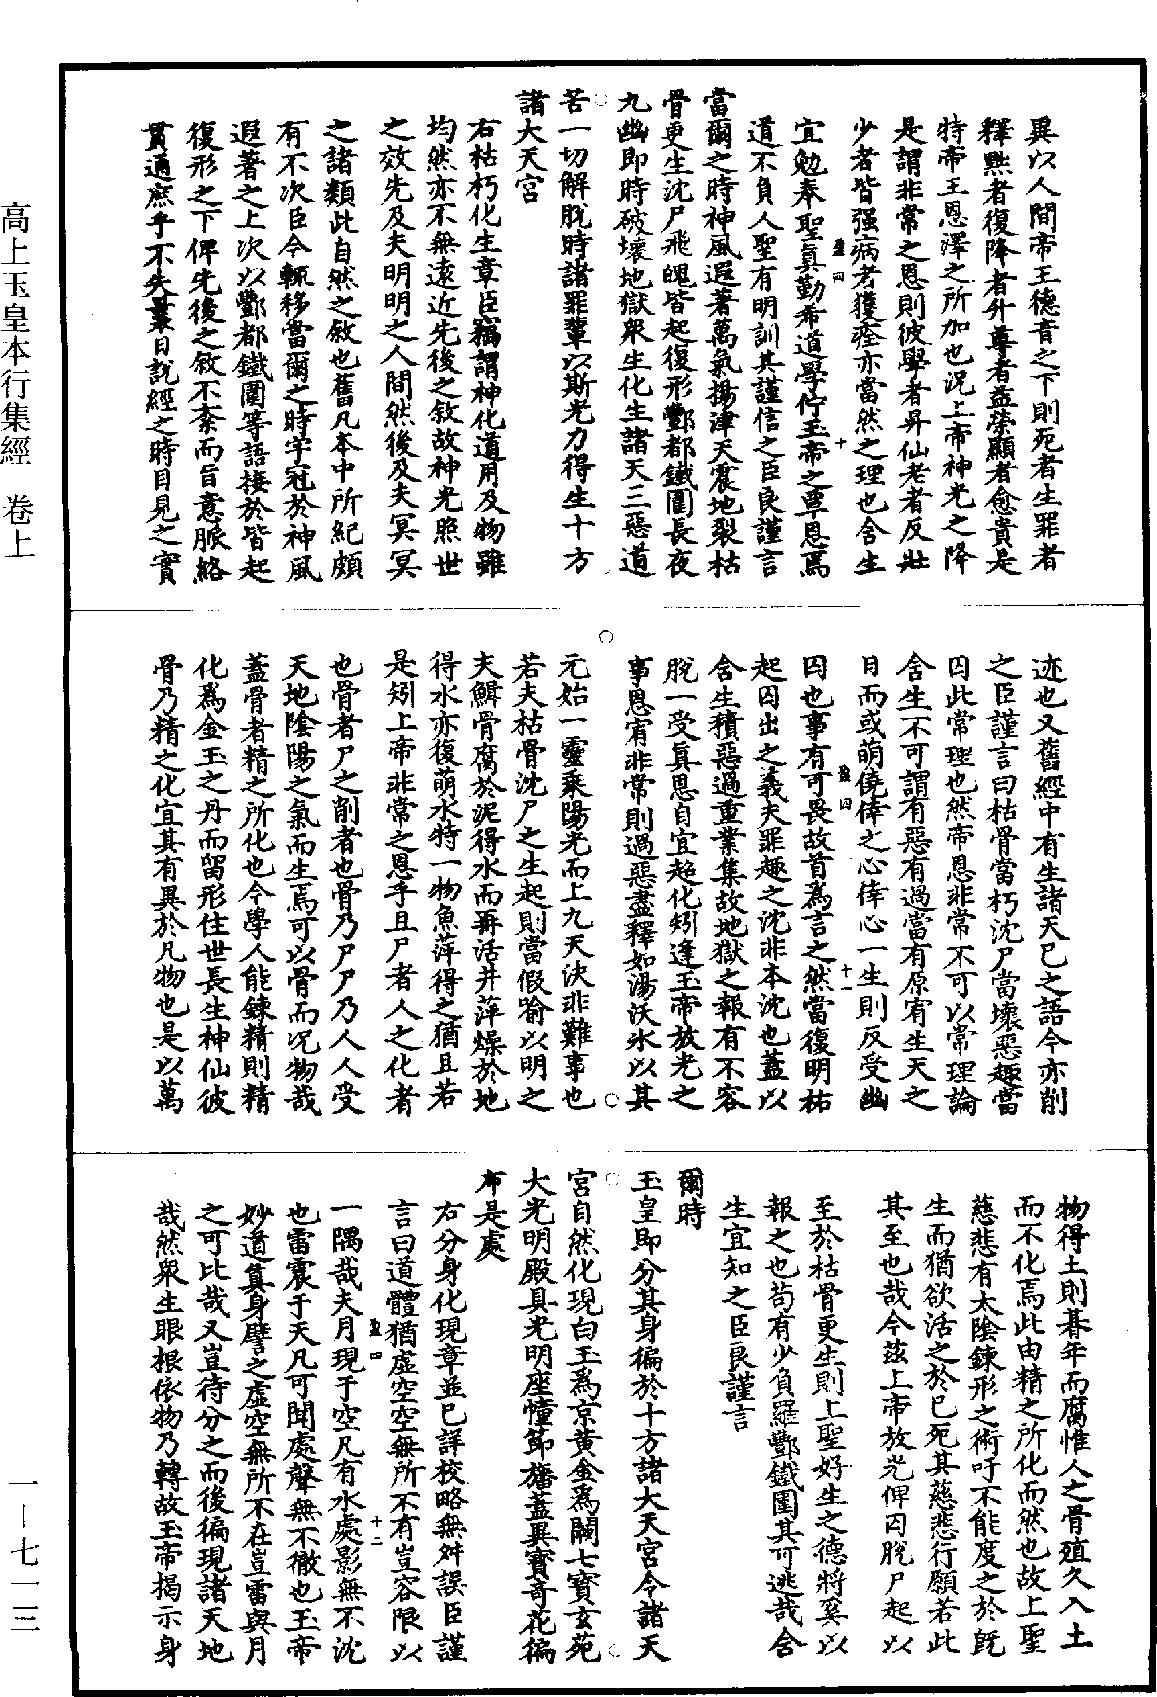 異以人間帝王德音之下則死者生罪者
釋黜者復降者升尊者益榮顯者愈貴是
特帝王恩澤之所加也況上帝神光之降
是謂非常之恩則彼學者昇仙老者反壯
少者皆强病者獲痊亦當然之理也含生
宜勉奉聖眞勤希道學佇玉帝之覃恩焉
道不負人聖有明訓其謹信之臣良謹言
當爾之時神風遐著萬氣揚津天震地裂枯
骨更生沈尸飛魄皆起復形酆都鐵圍長夜
九幽即時破壞地獄衆生化生諸天三惡道
苦一切解脫時諸罪輩以斯光力得生十方
諸大天宮
右枯朽化生章臣竊謂神化道用及物雖
均然亦不無遠近先後之敘故神光照世
之效先及夫明明之人間然後及夫冥冥
之諸類此自然之敘也舊凡本中所紀頗
有不次臣今輒移當爾之時字冠於神風
遐著之上次以酆都鐵圍等語接於皆起
復形之下俾先後之敘不紊而旨意脈絡
貫通庶乎不失曩日說經之時目見之實
迹也又舊經中有生諸天已之語今亦削
之臣謹言曰枯骨當朽沈尸當壞惡趣當
囚此常理也然帝恩非常不可以常理論
含生不可謂有惡有過當有原宥生天之
日而或萌僥倖之心倖心一生則反受幽
囚也事有可畏故首爲言之然當復明祐
起囚出之義夫罪趣之沈非本沈也蓋以
含生積惡過重業集故地獄之報有不容
脫一受眞恩自宜超化矧逢玉帝放光之
事恩宥非常則過惡盡釋如湯沃氷以其
元始一靈乘陽光而上九天決非難事也
若夫枯骨沈尸之生起則當假喻以明之
夫鰌骨腐於泥得水而再活井萍燥於地
得水亦復萌水特一物魚萍得之猶且若
是矧上帝非常之恩乎且尸者人之化者
也骨者尸之削者也骨乃尸尸乃人人受
天地陰陽之氣而生焉可以骨而況物哉
蓋骨者精之所化也今學人能鍊精則精
化爲金玉之丹而留形住世長生神仙彼
骨乃精之化宜其有異於凡物也是以萬
物得土則朞年而腐惟人之骨殖久入土
而不化焉此由精之所化而然也故上聖
慈悲有太陰鍊形之術吁不能度之於旣
生而猶欲活之於已死其慈悲行願若此
其至也哉今玆上帝放光俾囚脫尸起以
至於枯骨更生則上聖好生之德將奚以
報之也苟有少負羅酆鐵圍其可逃哉含
生宜知之臣良謹言
爾時
玉皇即分其身徧於十方諸大天宮令諸天
宮自然化現白玉爲京黃金爲闕七寶玄苑
大光明殿具光明座幢節旛蓋異寶奇花徧
布是處
右分身化現章並已詳校略無舛誤臣謹
言曰道體猶虛空空無所不有豈容限以
一隅哉夫月現于空凡有水處影無不沈
也雷震于天凡可聞處聲無不徹也玉帝
妙道眞身譬之虛空無所不在豈雷與月
之可比哉又豈待分之而後徧現諸天地
哉然衆生眼根依物乃轉故玉帝揭示身
盈四
十
盈四
十一
盈四
十二
高上玉皇本行集經 卷上
一—七一三